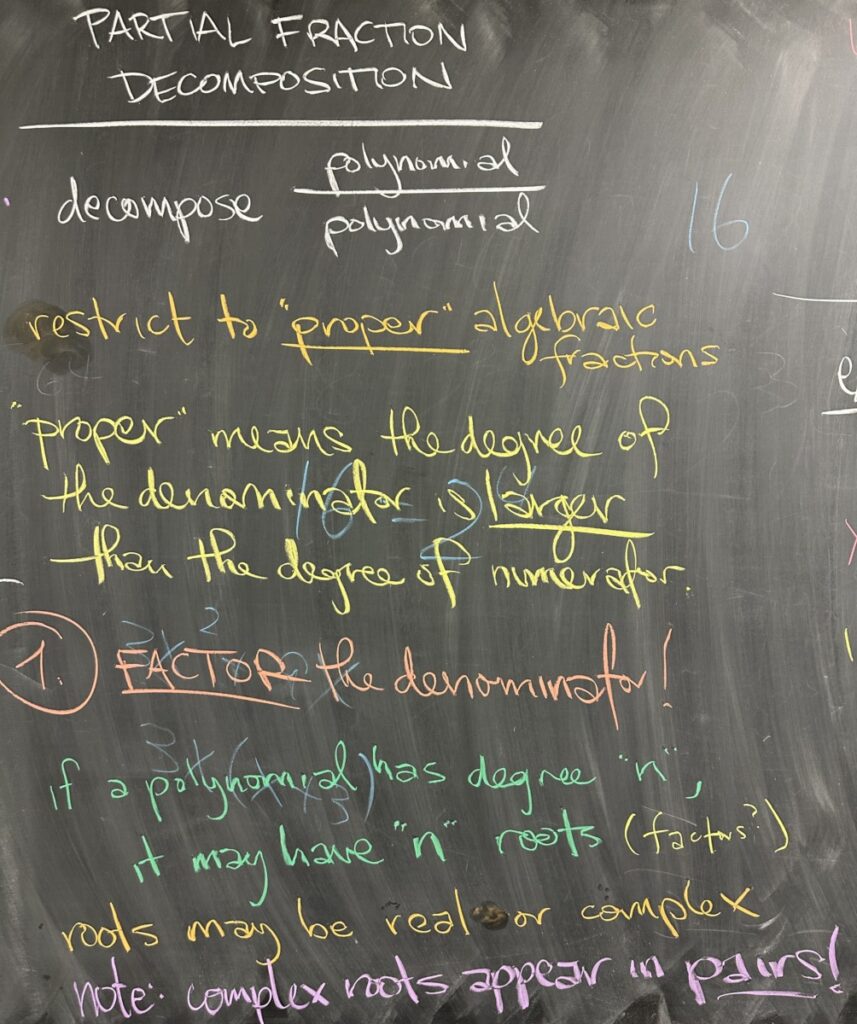 PARTIAL FRACTION
DECOMPOSITION
decompose polynomial
polynomial
16
restrict to "proper" algebraic
fractions
"proper" means the degree of
the denominator is larger
than the degree of numerator.
1. FACTOR the denominator!
if a polynomial has degree "n",
it may have "n" roots (factors?)
roots may be real or complex
note: complex roots appear in pairs!